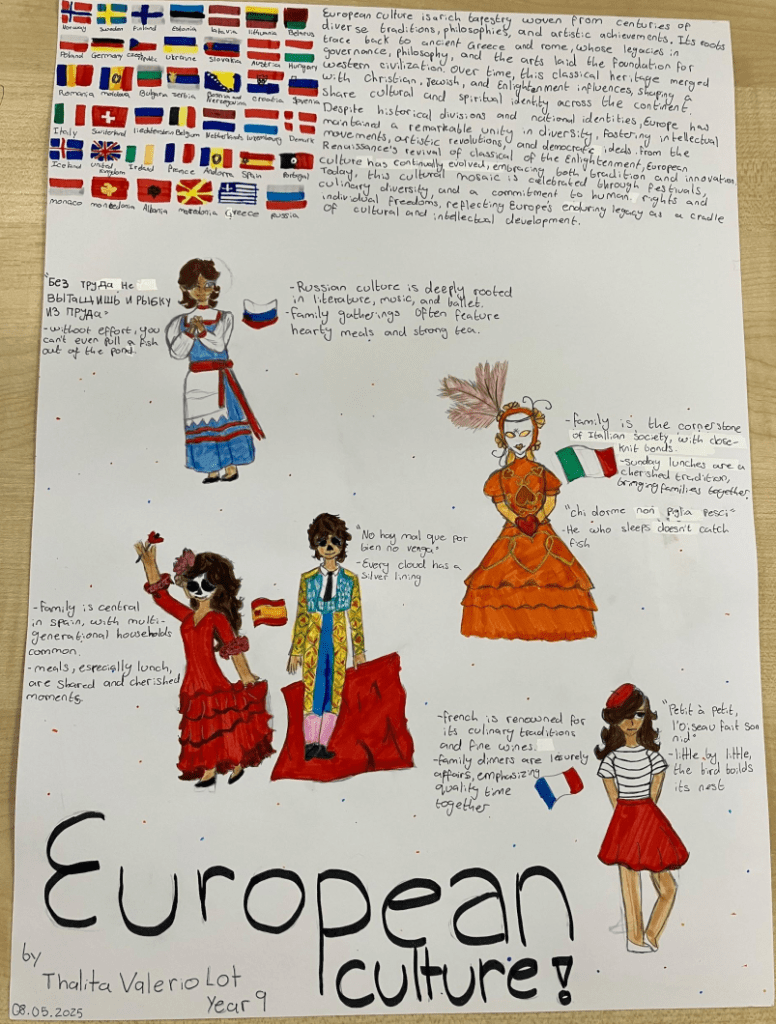 Norway Sweden Finland Estonia Latvia Lithuania Belarus
Poland Germany Czech Republic Ukraine Slovakia Austria Hungary
Romania moldova Bulgaria serbia Bosnia and Herzegovina Croatia Slovenia
Italy liechtenstein Belgium Netherlands luxembourg Denmark
Iceland United Kingdom Ireland France Andorra Spain Portugal
monaco Albania Greece russia
European culture is a rich tapestry woven from centuries of
diverse traditions, philosophies, and artistic achievements. Its roots
trace back to ancient Greece and rome, whose legacies in
governance, philosophy, and the arts laid the foundation for
western civilization. Over time, this classical heritage merged
with Christian, Jewish, and Enlightenment influences, shaping a
share cultural and spiritual identity across the continent.
Despite historical divisions and national identities, Europe has
maintained a remarkable unity in diversity, fostering intellectual
movements, artistic revolutions, and democratic ideals. From the
Renaissance's revival of classical of the Enlightenment, European
culture has continually evolved, embracing both tradition and innovation.
Today, this cultural mosaic is celebrated through festivals,
culinary diversity, and a commitment to human rights and
individual freedoms, reflecting Europe's enduring legacy as a cradle
of cultural and intellectual development.
"Без труда не
ВЫТАЩИШЬ И РЫБКУ
ИЗ ПРУДА"
-without effort, you
can't even pull a fish
out of the pond.
-Russian culture is deeply rooted
in literature, music, and ballet.
-Family gatherings often feature
hearty meals and strong tea.
-family is the cornerstone
of Itallian society, with close-
knit bonds.
-Sunday lunches are a
cherished tradition,
bringing families together.
"chi dorme non piglia pesci"
-He who sleeps doesn't catch
fish
"No hay mal que por
bien no venga"
-Every cloud has a
silver lining
-Family is central
in spain, with multi-
generational households
common.
-meals, especially lunch,
are shared and cherished
moments.
-french is renowned for
its culinary traditions
and fine wines.
-family dinners are leisurely
affairs, emphasizing
quality time
together.
"Petit à petit,
l'oiseau fait son
nid"
-little by little,
the bird builds
its nest
European
culture!
by
Thalita Valerio Lot
Year 9
08.05.2025